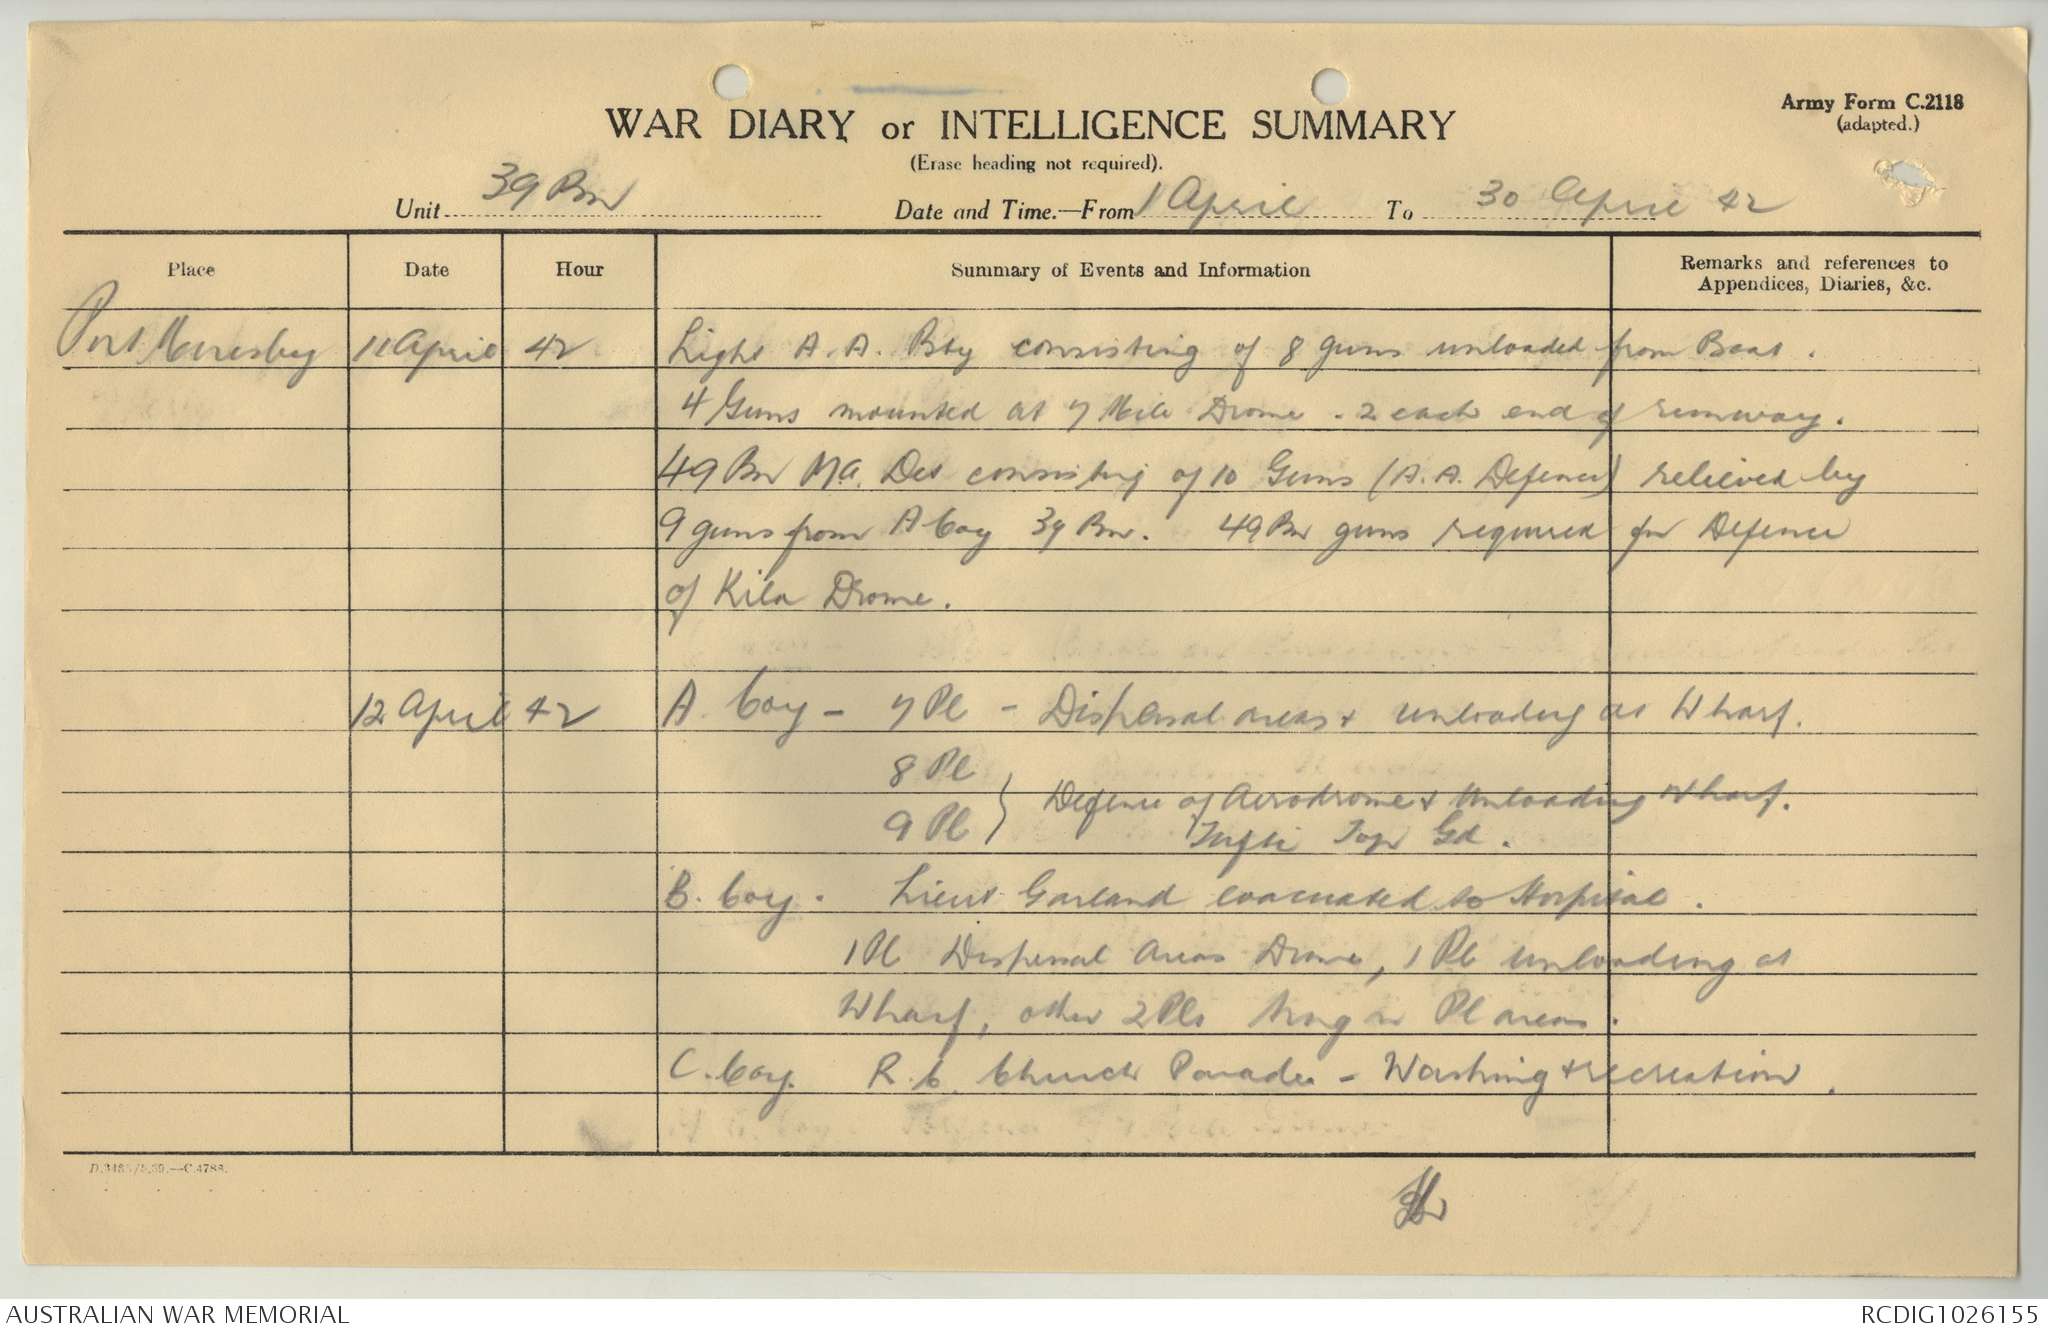 Army Form C.2118
(adapted.)
WAR DIARY or INTELLIGENCE SUMMARY
(Erase heading not required).
Unit 39 Bn Date and Time.—From 1 April To 30 April 42
Place Date Hour Summary of Events and Information Remarks and references to
Appendices, Diaries, &c.
Port Moresby 11 April 42 Light A.A. Bty consisting of 8 guns unloaded from Boat.
4 Guns mounted at 7 Mile Drome - 2 each end of runway.
49 Bn M.G. Det consisting of 10 Guns (A.A. Defence) relieved by
9 guns from A Coy 39 Bn. 49 Bn guns required for Defence
of Kila Drome.
12 April 42 A. Coy - 7 Pl - Dispersal areas & unloading at Wharf.
8 Pl
9 Pl } Defence of Aerodrome & Unloading Wharf.
Tufti Top Gd.
B. Coy. Lieut Garland evacuated to Hospital.
1 Pl Dispersal areas Drome, 1 Pl unloading at
Wharf, other 2 Pls trng in Pl areas.
C. Coy. R.C. Church Parade - Washing & recreation.
D.3483/5.39.—C.4788.
AUSTRALIAN WAR MEMORIAL RCDIG1026155